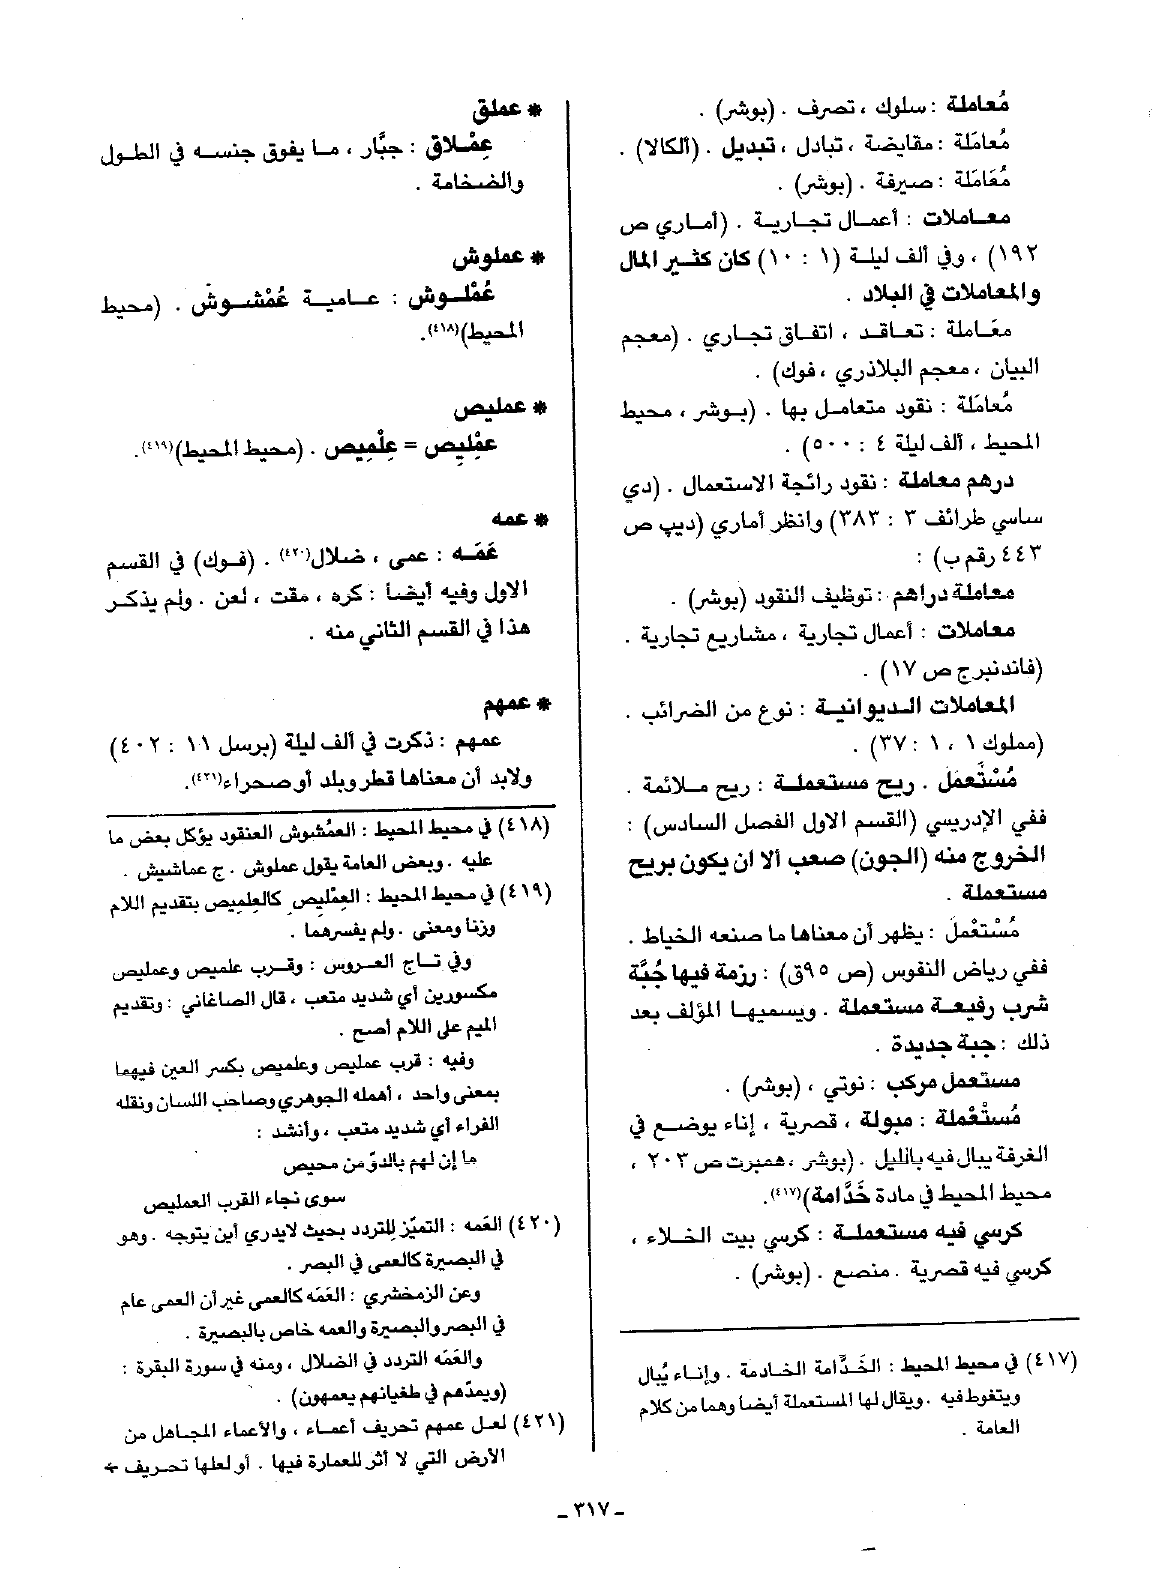 مُعاملة : سلوك ، تصرف . (بوشر) .
مُعامَلة : مقايضة ، تبادل ، تبديل . (ألكالا) .
مُعَامَلة : صيرفة . (بوشر) .
معـامـلات : أعمـال تجـاريـة . (أمـاري ص
١٩٢) ، وفي ألف ليلـة (١ : ١٠) كان كثـير المال
والمعاملات في البلاد .
معَـاملة : تعـاقـد ، اتفـاق تجـاري . (معجم
البيان ، معجم البلاذري ، فوك) .
مُعامَلة : نقود متعامـل بها . (بـوشر ، محيـط
المحيط ، ألف ليلة ٤ : ٥٠٠) .
درهم معاملة : نقود رائجة الاستعمال . (دي
ساسي طرائف ٣ : ٣٨٣) وانظر أماري (ديپ ص
٤٤٣ رقم ب) :
معاملة دراهم : توظيف النقود (بوشر) .
معاملات : أعمال تجارية ، مشاريع تجارية .
(فاندنبرج ص ١٧) .
المعاملات الـديوانيـة : نوع من الضرائب .
(مملوك ١ ، ١ : ٣٧) .
مُسْتَعمَل . ريح مستعملـة : ريح مـلائمة .
ففي الإدريسي (القسم الاول الفصل السادس) :
الخروج منه (الجون) صعب ألا ان يكون بريح
مستعملة .
مُسْتعْمل : يظهر أن معناها ما صنعه الخياط .
ففي رياض النفوس (ص ٩٥ق) : رزمة فيها جُبَّة
شرب رفيعـة مستعملة . ويسميهـا المؤلف بعد
ذلك : جبة جديدة .
مستعمل مركب : نوتي ، (بوشر) .
مُستعْملة : مبولة ، قصرية ، إناء يوضـع في
الغرفة يبال فيه بالليل . (بوشر ، همبرت ص ٢٠٣ ،
محيط المحيط في مادة خَدَّامة)(٤١٧).
كرسي فيه مستعملـة : كرسي بيت الخلاء ،
كرسي فيه قصرية . منصع . (بوشر) .
(٤١٧) في محيط المحيط : الخَدَّامة الخادمة . وإنـاء يُبال
ويتغوط فيه . ويقال لها المستعملة أيضا وهما من كلام
العامة .
* عملق
عِمْلاق : جبَّار ، مـا يفوق جنسـه في الطـول
والضخامة .
* عملوش
عُمْلـوش : عـاميـة عُمْشـوش . (محيـط
المحيط)(٤١٨).
* عمليص
عمْلِيص = عِلْمِيص . (محيط المحيط)(٤١٩).
* عمه
عَمَـه : عمى ، ضلال(٤٢٠) . (فـوك) في القسم
الاول وفيه أيضـا : كره ، مقت ، لعن . ولم يذكـر
هذا في القسم الثاني منه .
* عمهم
عمهم : ذكرت في ألف ليلة (برسل ١١ : ٤٠٢)
ولابد أن معناها قطر وبلد أو صحراء(٤٢١).
(٤١٨) في محيط المحيط : العمْشوش العنقود يؤكل بعض ما
عليه . وبعض العامة يقول عملوش . ج عماشيش .
(٤١٩) في محيط المحيط : العِمْلِيص كالعِلمِيص بتقديم اللام
وزنا ومعنى . ولم يفسرهما .
وفي تـاج العـروس : وقـرب علميص وعمليص
مكسورين أي شديد متعب ، قال الصاغاني : وتقديم
الميم على اللام أصح .
وفيه : قرب عمليص وعلميص بكسر العين فيهما
بمعنى واحد ، أهمله الجوهري وصاحب اللسان ونقله
الفراء أي شديد متعب ، وأنشد :
ما إن لهم بالدوّ من محيص
سوى نجاء القرب العمليص
(٤٢٠) العَمه : التميّز للتردد بحيث لايدري أين يتوجه . وهو
في البصيرة كالعمى في البصر .
وعن الزمخشري : العَمَه كالعمى غير أن العمى عام
في البصر والبصيرة والعمه خاص بالبصيرة .
والعَمَه التردد في الضلال ، ومنه في سورة البقرة :
(ويمدّهم في طغيانهم يعمهون) .
(٤٢١) لعـل عمهم تحريف أعمـاء ، والأعماء المجـاهل من
الأرض التي لا أثر للعمارة فيها . أو لعلها تحـريف ÷
ـ ٣١٧ ـ